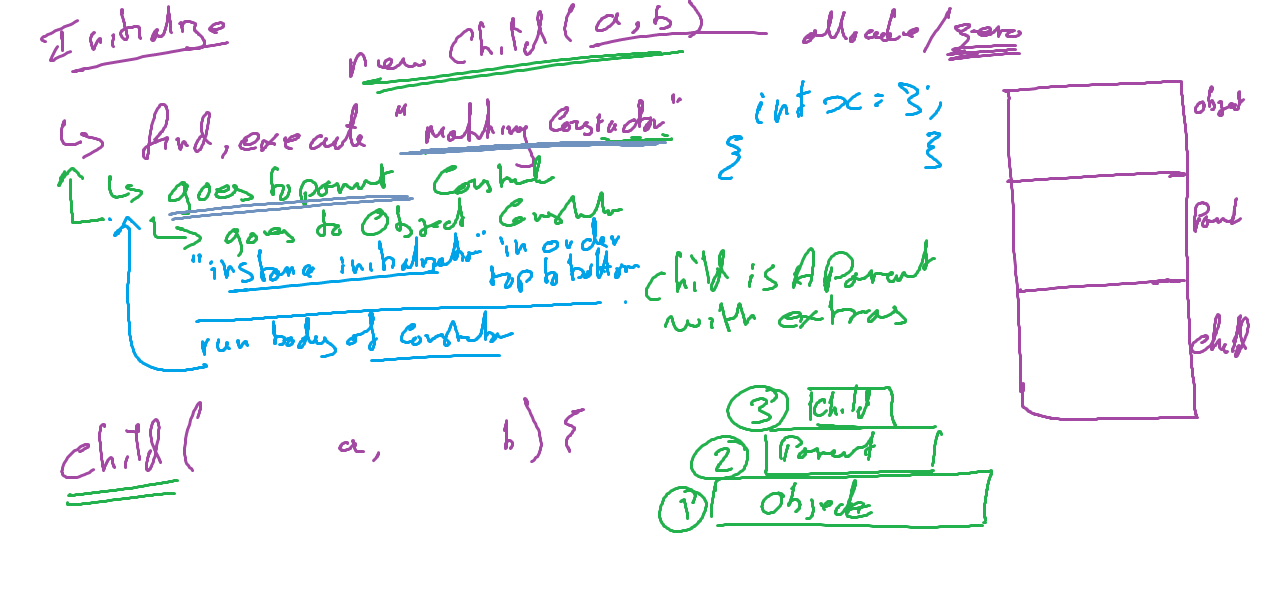 Initialize
new Child(a,b) allocate/zero
↳ find, execute "matching Constructor"
int x = 3;
{ }
↳ goes to parent Constructor
↳ goes to Object Constructor
"instance initializator" in order
top to bottom
run bodies of Constructor
Child is A Parent
with extras
object
Parent
Child
Child( a, b) {
3 Child
2 Parent
1 Object